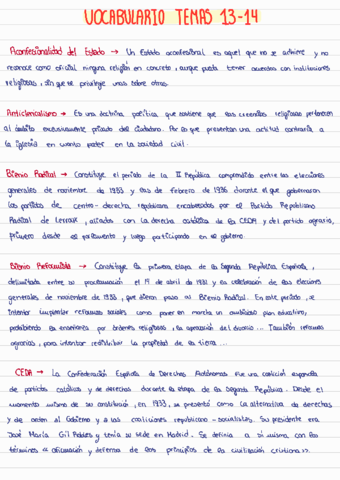 VOCABULARIO TEMAS 13-14
Aconfesionalidad del Estado → Un Estado aconfesional es aquel que no se adhiere y no
reconoce como oficial ninguna religión en concreto, aunque pueda tener acuerdos con instituciones
religiosas, sin que se privilegie unas sobre otras.
Anticlericalismo → Es una doctrina política que sostiene que las creencias religiosas pertenecen
al ámbito exclusivamente privado del ciudadano. Por eso que presentan una actitud contraria a
la iglesia en cuanto poder en la sociedad civil.
Bienio Radical → Constituye el período de la II República comprendido entre las elecciones
generales de noviembre de 1933 y las de febrero de 1936 durante el que gobernaron
los partidos de centro-derecha, republicana encabezados por el Partido Republicano
Radical de Lerroux, aliados con la derecha católica de la CEDA y del partido agrario,
primero desde el parlamento y luego participando en el gobierno.
Bienio Reformista → Constituye la primera etapa de la Segunda República Española,
delimitada entre su proclamación el 14 de abril de 1931 y la celebración de las elecciones
generales de noviembre de 1933, que dieron paso al Bienio Radical. En este período, se
intentar implantar reformas sociales como poner en marcha un ambicioso plan educativo,
prohibiendo la enseñanza por órdenes religiosas, la aprobación del divorcio ... También reformas
agrarias, para intentar redistribuir la propiedad de la tierra ...
CEDA → La Confederación Española de Derechas Autónomas fue una coalición española
de partidos católicos y de derechas durante la etapa de la Segunda República. Desde el
momento mismo de su constitución, en 1933, se presentó como la alternativa de derechas
y de orden al Gobierno y a las coaliciones republicano-socialistas. Su presidente era
José María Gil Robles y tenía su sede en Madrid. Se definía a sí misma con los
términos « afirmación y defensa de los principios de la civilización cristiana».